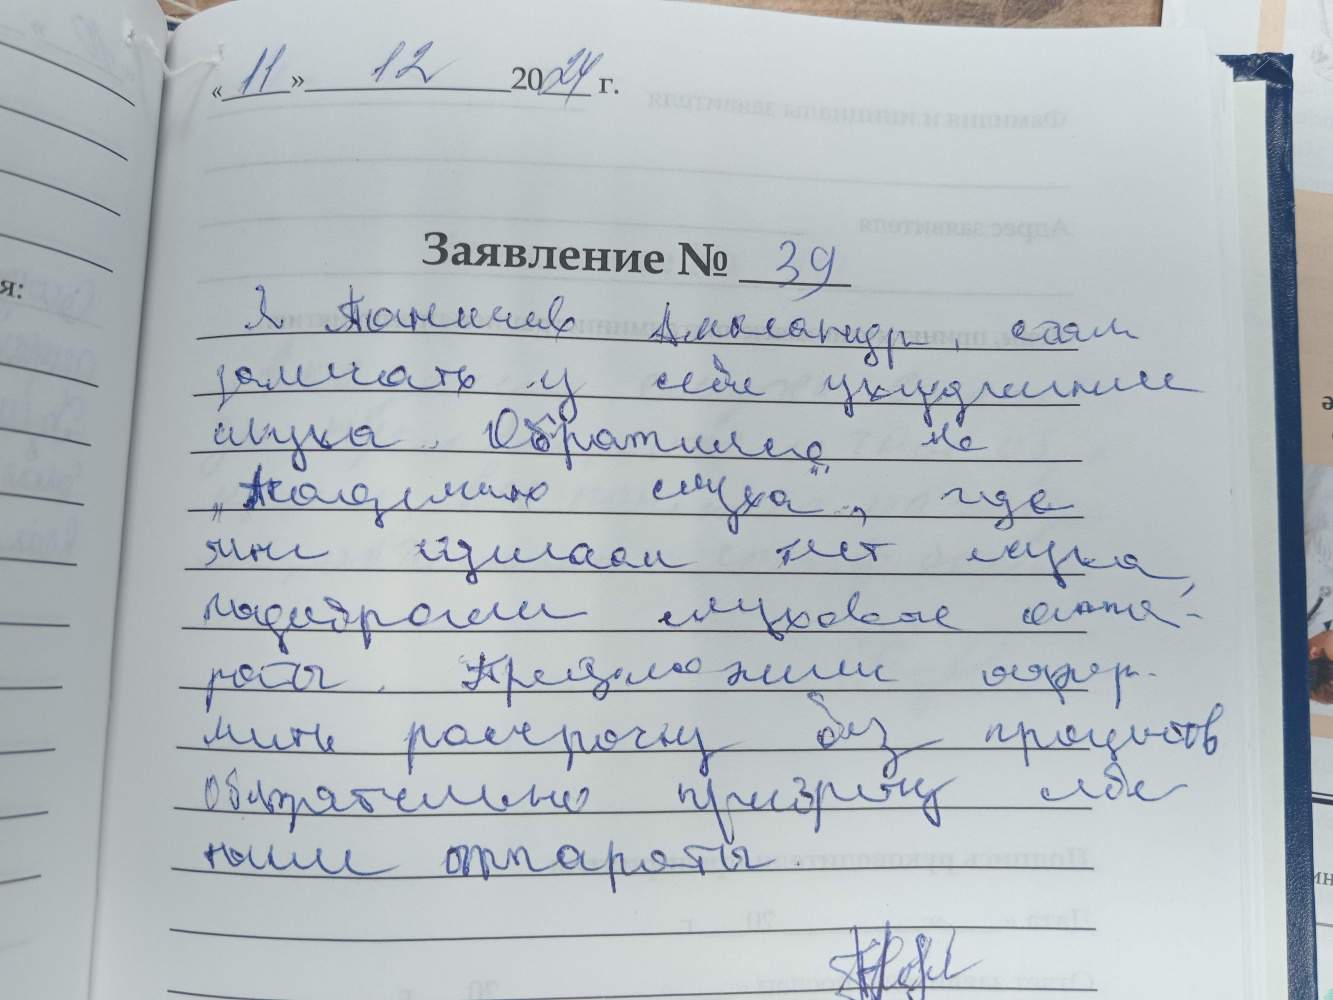 «11» 12 2024 г.
Заявление № 39
Я Александр, стал
замечать у себя ухудшение
слуха. Обратился
"Академию слуха", где
мне сделали тест слуха,
подобрали слуховые аппа-
раты. Предложили офор-
мить рассрочку без процентов
Обязательно себе
аппараты.
я: